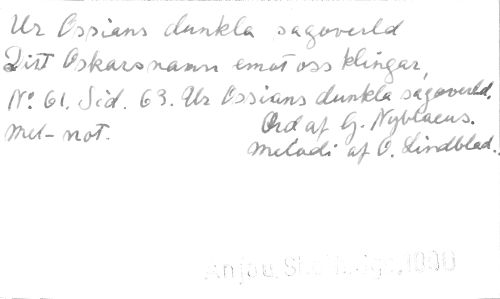 Ur Ossians dunkla sagoverld
Ditt Oskarsnamn emot oss klingar,
No. 61. Sid. 63. Ur Ossians dunkla sagoverld.
Mel-not. Ord af G. Nyblaeus.
Melodi af O. Lindblad.